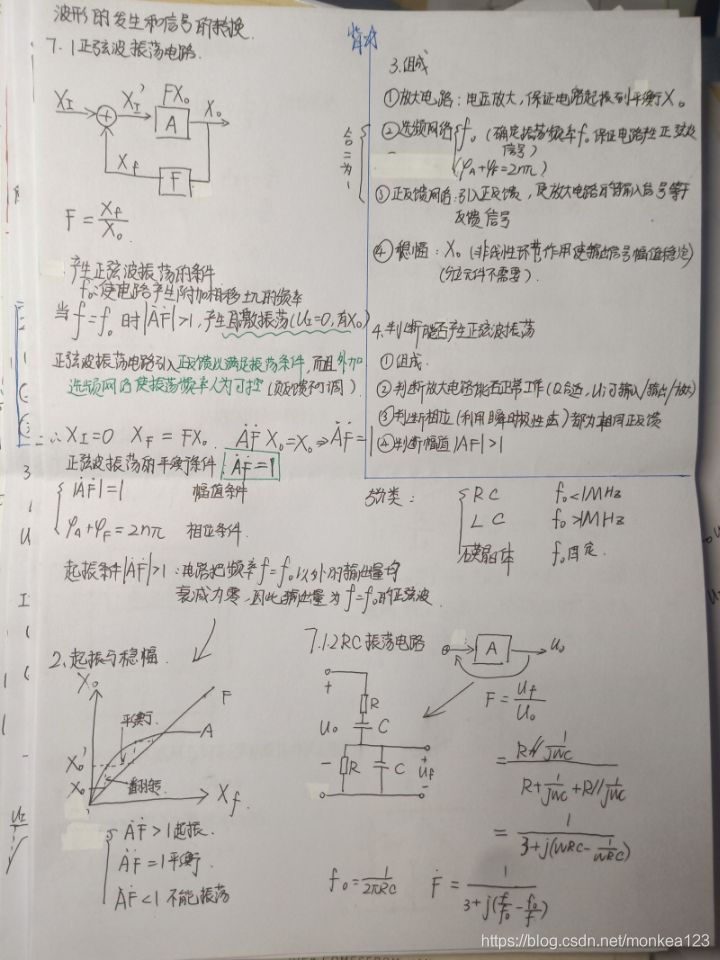 波形的发生和信号的转换
7.1正弦波振荡电路
X_I X_I' FX_o X_o
A
X_f F
F = X_f / X_o
产生正弦波振荡的条件
f_o:使电路产生附加相移±π的频率
当 f=f_o 时|ȦḞ|>1,产生自激振荡(U_I=0,有X_o)
正弦波振荡电路引入正反馈以满足振荡条件,而且外加
选频网络使振荡频率人为可控(负反馈不可调)
∴ X_I=0 X_F = FX_o ȦḞ X_o=X_o ⇒ ȦḞ=1
正弦波振荡的平衡条件:ȦḞ=1
|ȦḞ|=1 幅值条件
φ_A+φ_F=2nπ 相位条件
起振条件|ȦḞ|>1:电路把频率f=f_o以外的输出量均
衰减为零,因此输出量为f=f_o的正弦波
2、起振与稳幅
X_o
F
平衡
A
X_o'
X_o
X_f
ȦḞ>1起振
ȦḞ=1平衡
ȦḞ<1 不能振荡
背对
3.组成
①放大电路:电压放大,保证电路起振到平衡X_o
合二为一
②选频网络 f_o(确定振荡频率f_o保证电路产生正弦波
信号)
(φ_A+φ_F=2nπ)
③正反馈网络:引入正反馈,使放大电路的输入信号等于
反馈信号
④稳幅:X_o(非线性环节作用使输出信号幅值稳定)
(分立元件不需要)
4.判断能否产生正弦波振荡
①组成
②判断放大电路能否正常工作(Q合适,Ui可输入/输出/放大)
③判断相位(利用瞬时极性法)都为相同正反馈
④判断幅值|AF|>1
分类:
RC f_o<1MHz
LC f_o>1MHz
石英晶体 f_o固定
7.1.2RC振荡电路
A U_o
+ R
U_o C
- R C + U_f -
F = U_f / U_o
= (R∥1/jwC) / (R+1/jwC+R∥1/jwC)
= 1 / (3+j(wRC-1/wRC))
f_o=1/2πRC Ḟ = 1 / (3+j(f/f_o-f_o/f))
https://blog.csdn.net/monkea123